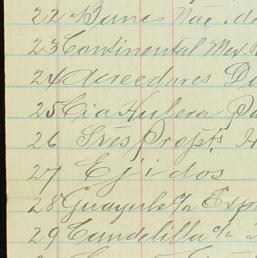 22 Banco Nac. de
23 Continental Mex.
24 Acreedores D
25 Cia Hulera Pa
26 Sres Propts. H
27 Ejidos
28 Guayule c/a Exp
29 Candelilla c/a